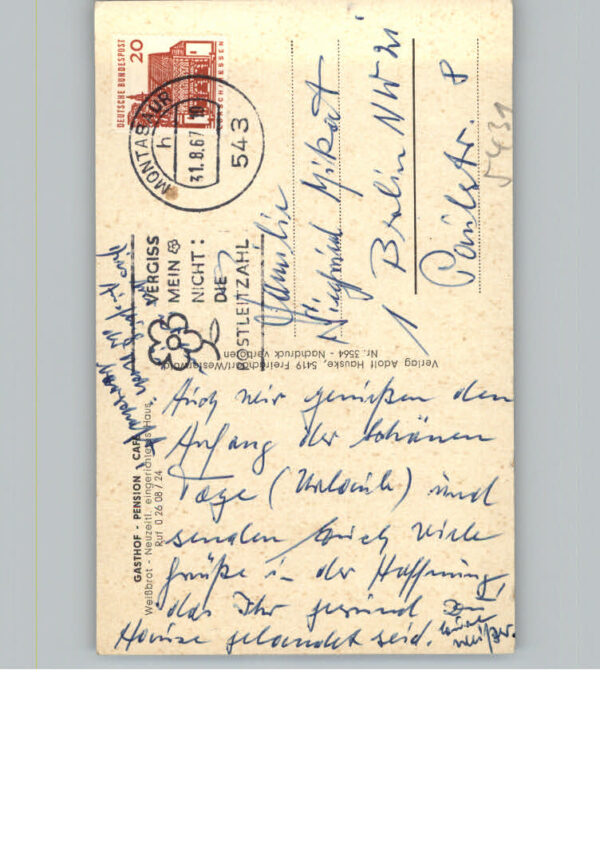 DEUTSCHE BUNDESPOST
20
LORSCH/HESSEN
MONTABAUR
h
31.8.67
543
VERGISS
MEIN
NICHT:
DIE
POSTLEITZAHL
Familie
Siegfried Mikat
1 Berlin NW 21
Paulstr. 8
5431
Verlag Adolf Hauske, 5419 Freirachdorf/Westerwald
Nr. 3564 - Nachdruck verboten
GASTHOF - PENSION - CAFÉ
Weißbrot - Neuzeitl. eingerichtetes Haus
Ruf 0 26 08 / 24
Auch wir genießen den
Anfang der schönen
Tage (Urlaub) und
senden Euch viele
Grüße in der Hoffnung,
das Ihr gesund zu
Hause gelandet seid.